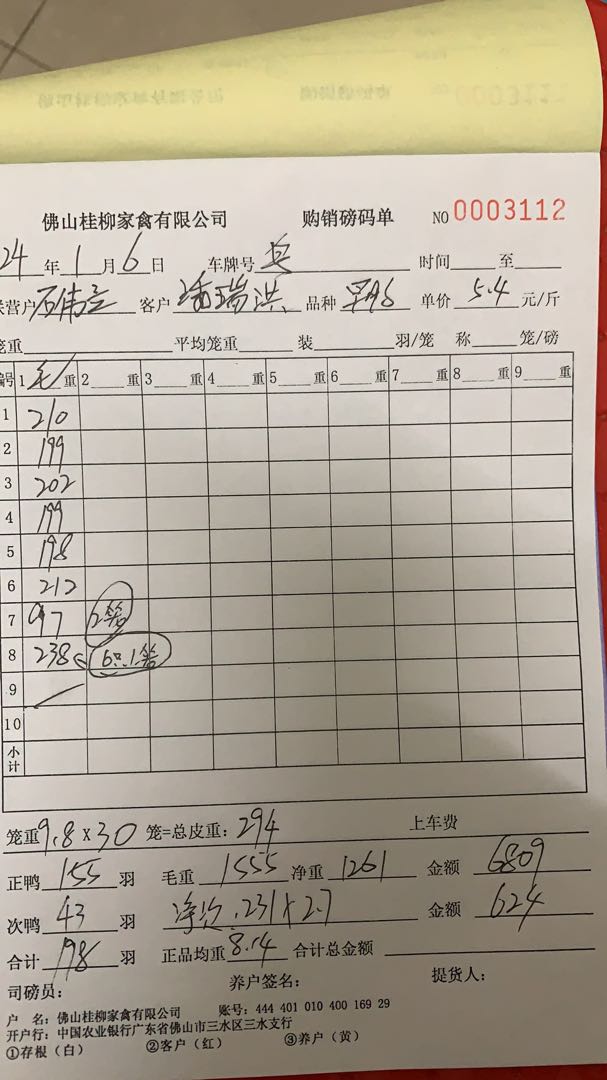 佛山桂柳家禽有限公司 购销磅码单 NO 0003112
24 年 1 月 6 日 车牌号 时间 至
联营户 石伟 客户 潘瑞洪 品种 单价 5.4 元/斤
笼重 平均笼重 装 羽/笼 称 笼/磅
编号 1 毛 重 2 重 3 重 4 重 5 重 6 重 7 重 8 重 9 重
1 210
2 199
3 202
4 199
5 198
6 212
7 97 2笼
8 238 6只.1笼
9
10
小计
笼重 9.8×30 笼=总皮重: 294 上车费
正鸭 155 羽 毛重 1555 净重 1261 金额 6809
次鸭 43 羽 净次.231×2.7 金额 624
合计 198 羽 正品均重 8.14 合计总金额
司磅员: 养户签名: 提货人:
户 名: 佛山桂柳家禽有限公司 账号: 444 401 010 400 169 29
开户行: 中国农业银行广东省佛山市三水区三水支行
①存根(白) ②客户(红) ③养户(黄)